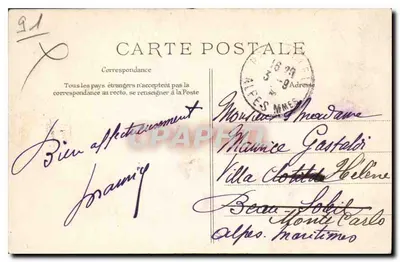 91
CARTE POSTALE
Correspondance
Tous les pays étrangers n'acceptent pas la
correspondance au recto, se renseigner à la Poste
16 30
3 -9
Adres
ALPES MMES
Bien affectueusement
Monsieur & madame
Maurice Gastaldi
Villa Clotilde Hélène
Beau Soleil
Monte Carlo
Alpes. maritimes